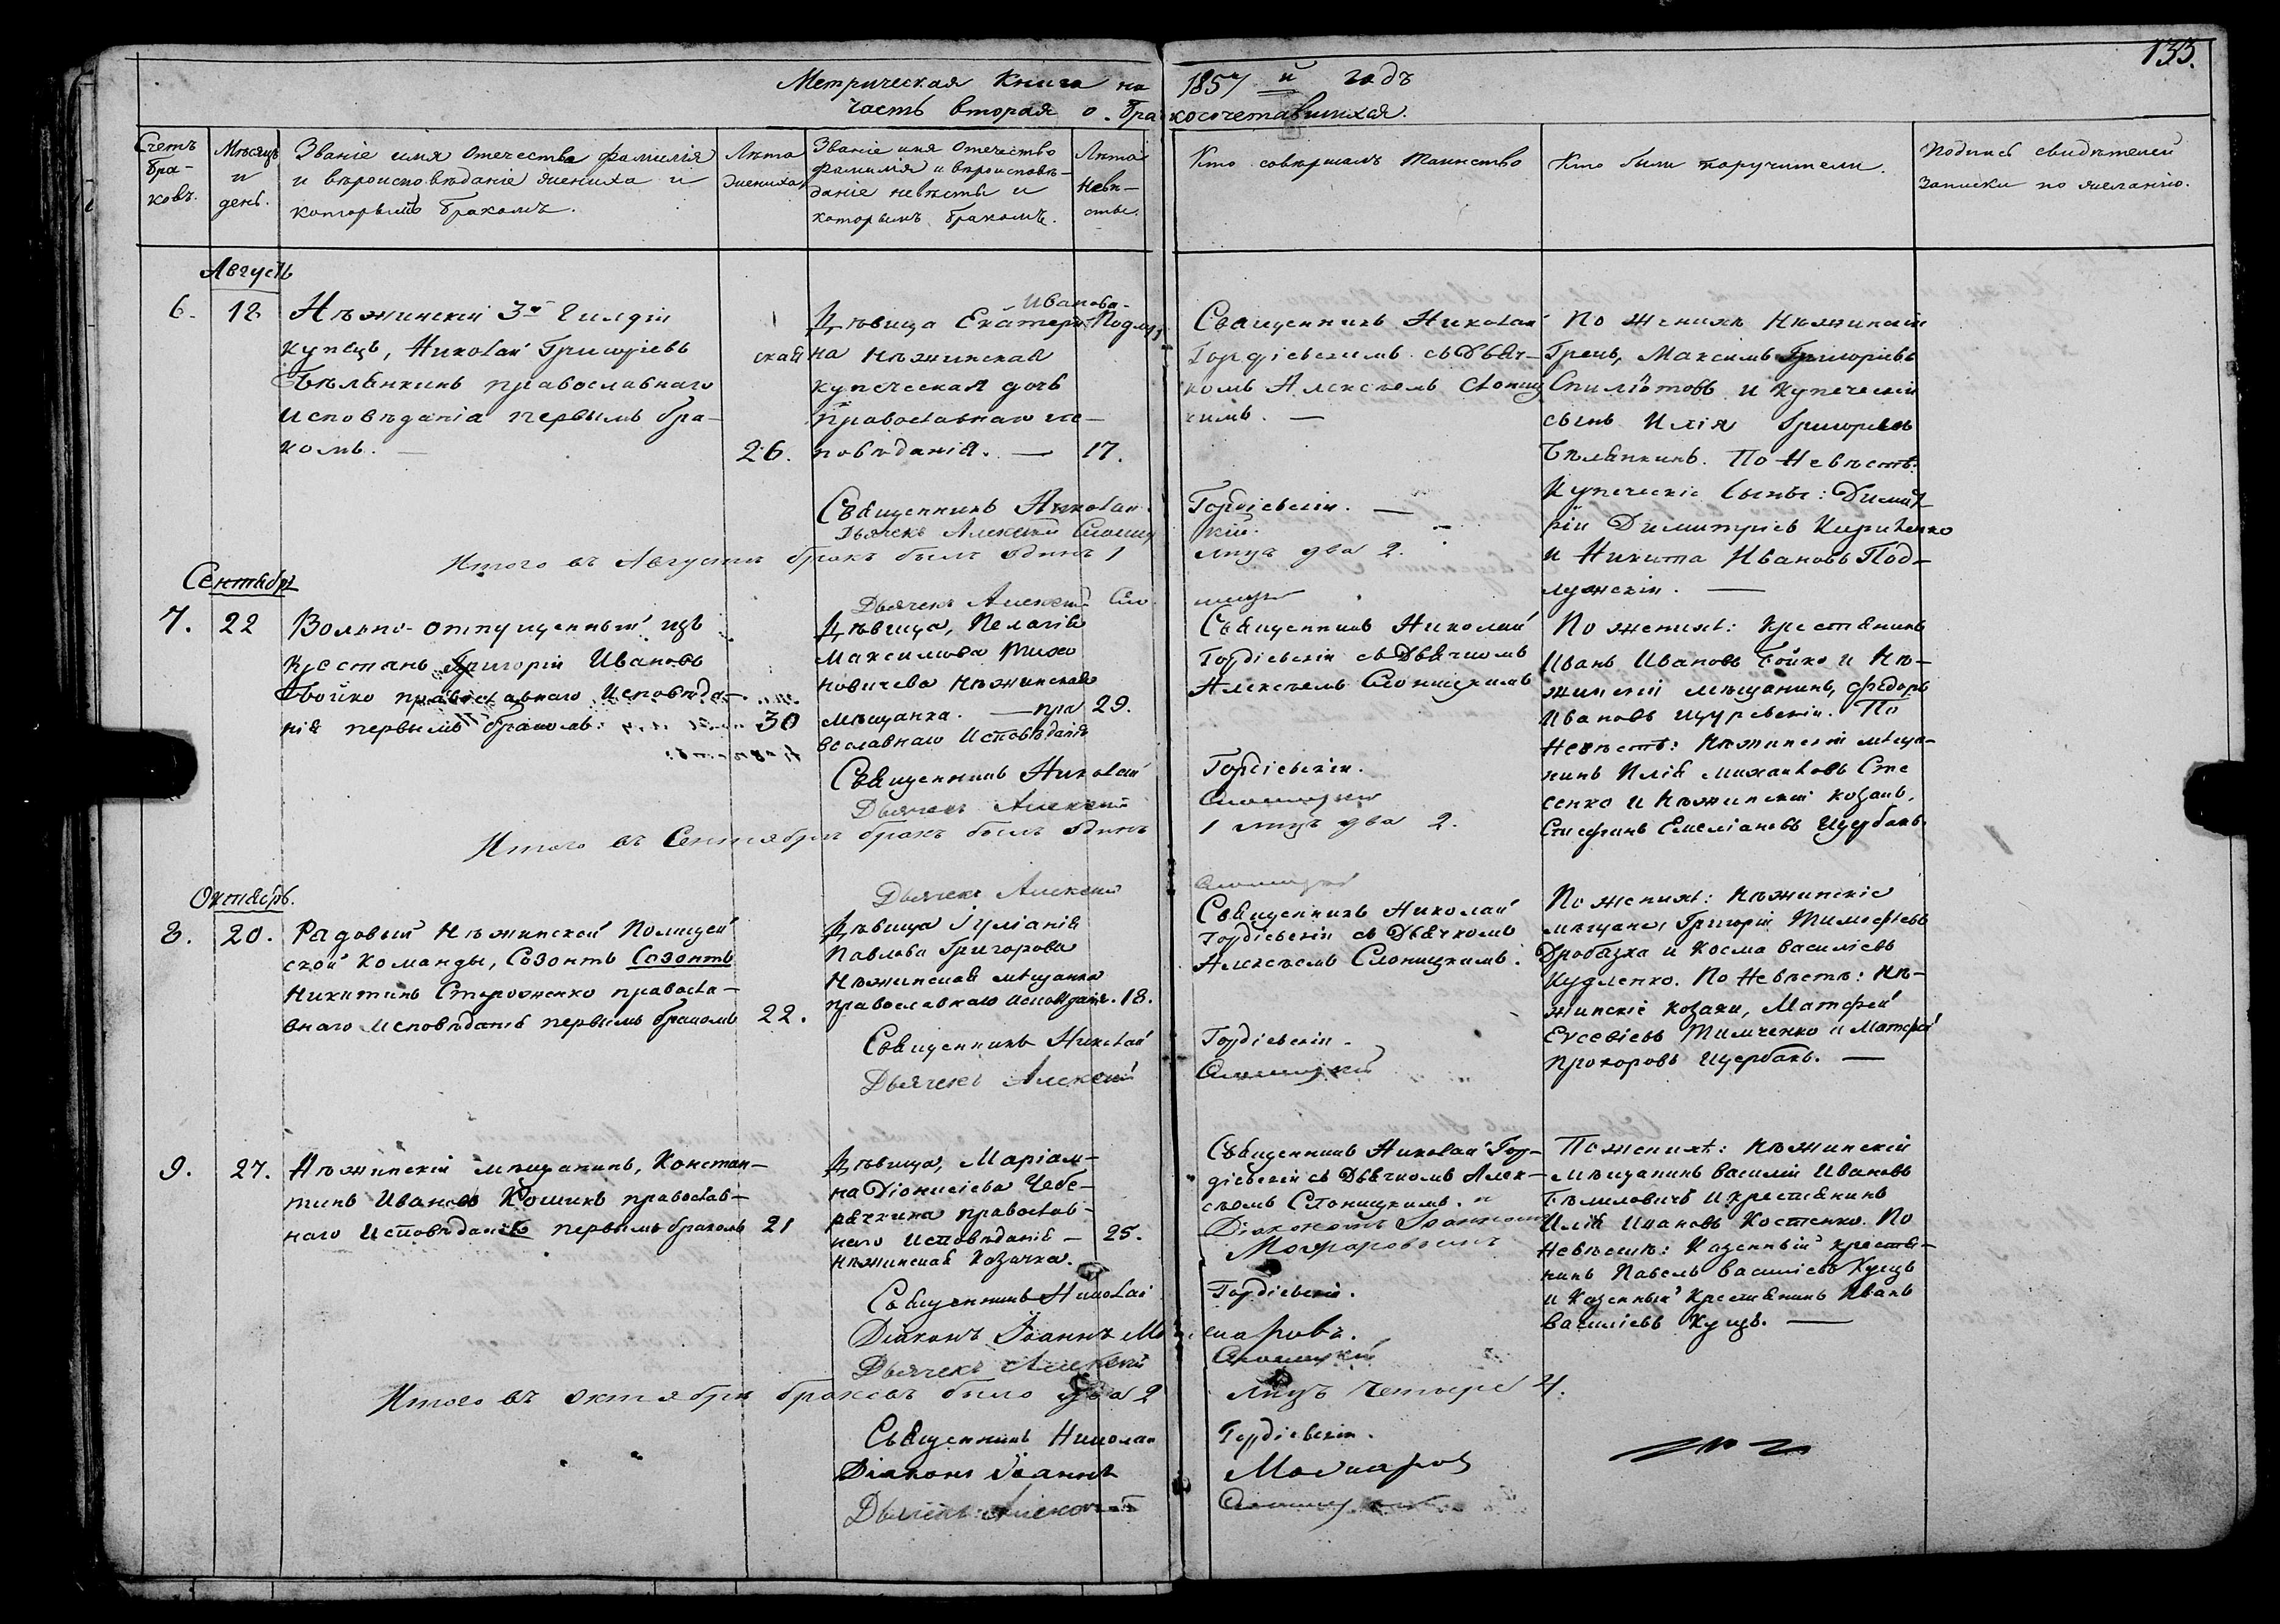 133.
Метрическая Книга на 1857 й годъ
часть вторая о бракосочетавшихся.
Счетъ
бра-
ковъ.
Мѣсяцъ
и
день.
Званіе имя Отечество фамилія
и вѣроисповѣданіе жениха и
которымъ бракомъ.
Лѣта
жениха
Званіе имя Отечество
фамилія и вѣроисповѣ-
даніе невѣсты и
которымъ бракомъ.
Лѣта
Невѣ-
сты.
Кто совершалъ Таинство
Кто были поручители.
Подпись свидѣтелей
Записки по желанію.
Августъ
6.
12
Нѣжинскій 3й Гилдіи
Купецъ, Николай Григорьевъ
Бѣлянкинъ православнаго
исповѣданія первымъ бра-
комъ. —
26.
Иванова-
Дѣвица Екатери- Подлу
ская на Нѣжинская
купеческая дочь
православнаго ис-
повѣданія. —
17.
Священникъ Николай
Гордіевскимъ съ Дьяч-
комъ Алексѣемъ Слониц
кимъ. —
По Женихѣ Нѣжинскій
Грекъ, Максимъ Григорьевъ
Спиліотовъ и Купеческій
сынъ Илія Григорьевъ
Бѣлянкинъ. По Невѣстѣ:
Купеческіе сыны: Димит-
рій Димитріевъ Кириленко
и Никита Ивановъ Под-
лужскій. —
Священникъ Николай Гордіевскій. —
Дьячекъ Алексѣй Слониц кій.
Итого въ Августѣ бракъ былъ одинъ 1 лицъ два 2.
Сентябрь
Дьячекъ Алексѣй Сло ницкій
7.
22
Вольно-отпущенный изъ
Крестьянъ Григорій Ивановъ
Бойко православнаго Исповѣда-
нія первымъ бракомъ.
30
Дѣвица, Пелагія
Максимова Тихо
новичева Нѣжинская
мѣщанка. — пра
вославнаго Исповѣданія
29.
Священникъ Николай
Гордіевскій съ Дьячкомъ
Алексѣемъ Слоницкимъ
По женихѣ: Крестьянинъ
Иванъ Ивановъ Бойко и Нѣ-
жинскій мѣщанинъ, Федоръ
Ивановъ Щуревскій. По
Невѣстѣ: Нѣжинскій мѣща-
нинъ Илія Михайловъ Сте
сенко и Нѣжинскій козакъ,
Стефанъ Емеліановъ Щербакъ
Священникъ Николай Гордіевскій.
Дьячекъ Алексѣй Слоницкій
Итого въ Сентябрѣ бракъ былъ одинъ 1 лицъ два 2.
Октябрь.
Дьячекъ Алексѣй Слоницкій
8.
20.
Рядовый Нѣжинской Полицей
ской Команды, Созонтъ Созонтъ
Никитинъ Стороженко правосла-
внаго исповѣданія первымъ бракомъ
22.
Дѣвица Іуліанія
Павлова Григорова
Нѣжинская мѣщанка
православнаго исповѣданія.
18.
Священникъ Николай
Гордіевскій съ Дьячкомъ
Алексѣемъ Слоницкимъ.
По женихѣ: Нѣжинскіе
мѣщане, Григорій Тимофѣевъ
Дробязка и Косма Василіевъ
Кудленко. По Невѣстѣ: Нѣ-
жинскіе козаки, Матфей
Евсевіевъ Тимченко и Матфей
Прохоровъ Щербакъ. —
Священникъ Николай Гордіевскій.
Дьячекъ Алексѣй Слоницкій
9.
27.
Нѣжинскій мѣщанинъ, Констан-
тинъ Ивановъ Кошикъ православ-
наго Исповѣданія первымъ бракомъ
21
Дѣвица, Маріам-
на Діонисіева Чебе-
рячкина православ-
наго Исповѣданія —
Нѣжинская Козачка.
25.
Священникъ Николай Гор-
діевскій съ Дьячкомъ Алек-
сѣемъ Слоницкимъ. и
Діакономъ Іоанномъ
По женихѣ: Нѣжинскій
мѣщанинъ Василій Ивановъ
Бѣмиловичъ и крестьянинъ
Илія Ивановъ Костенко. По
Невѣстѣ: Казенный крестья-
нинъ Павелъ Василіевъ Куцъ
и Казенный Крестьянинъ Иванъ
Василіевъ Куцъ. —
Священникъ Николай Гордіевскій.
Діаконъ Іоаннъ
Дьячекъ Алексѣй Слоницкій
Итого въ Октябрѣ браковъ было два 2 лицъ четыре 4.
Священникъ Николай Гордіевскій.
Діаконъ Іоаннъ
Дьячекъ Алексѣй Слоницкій